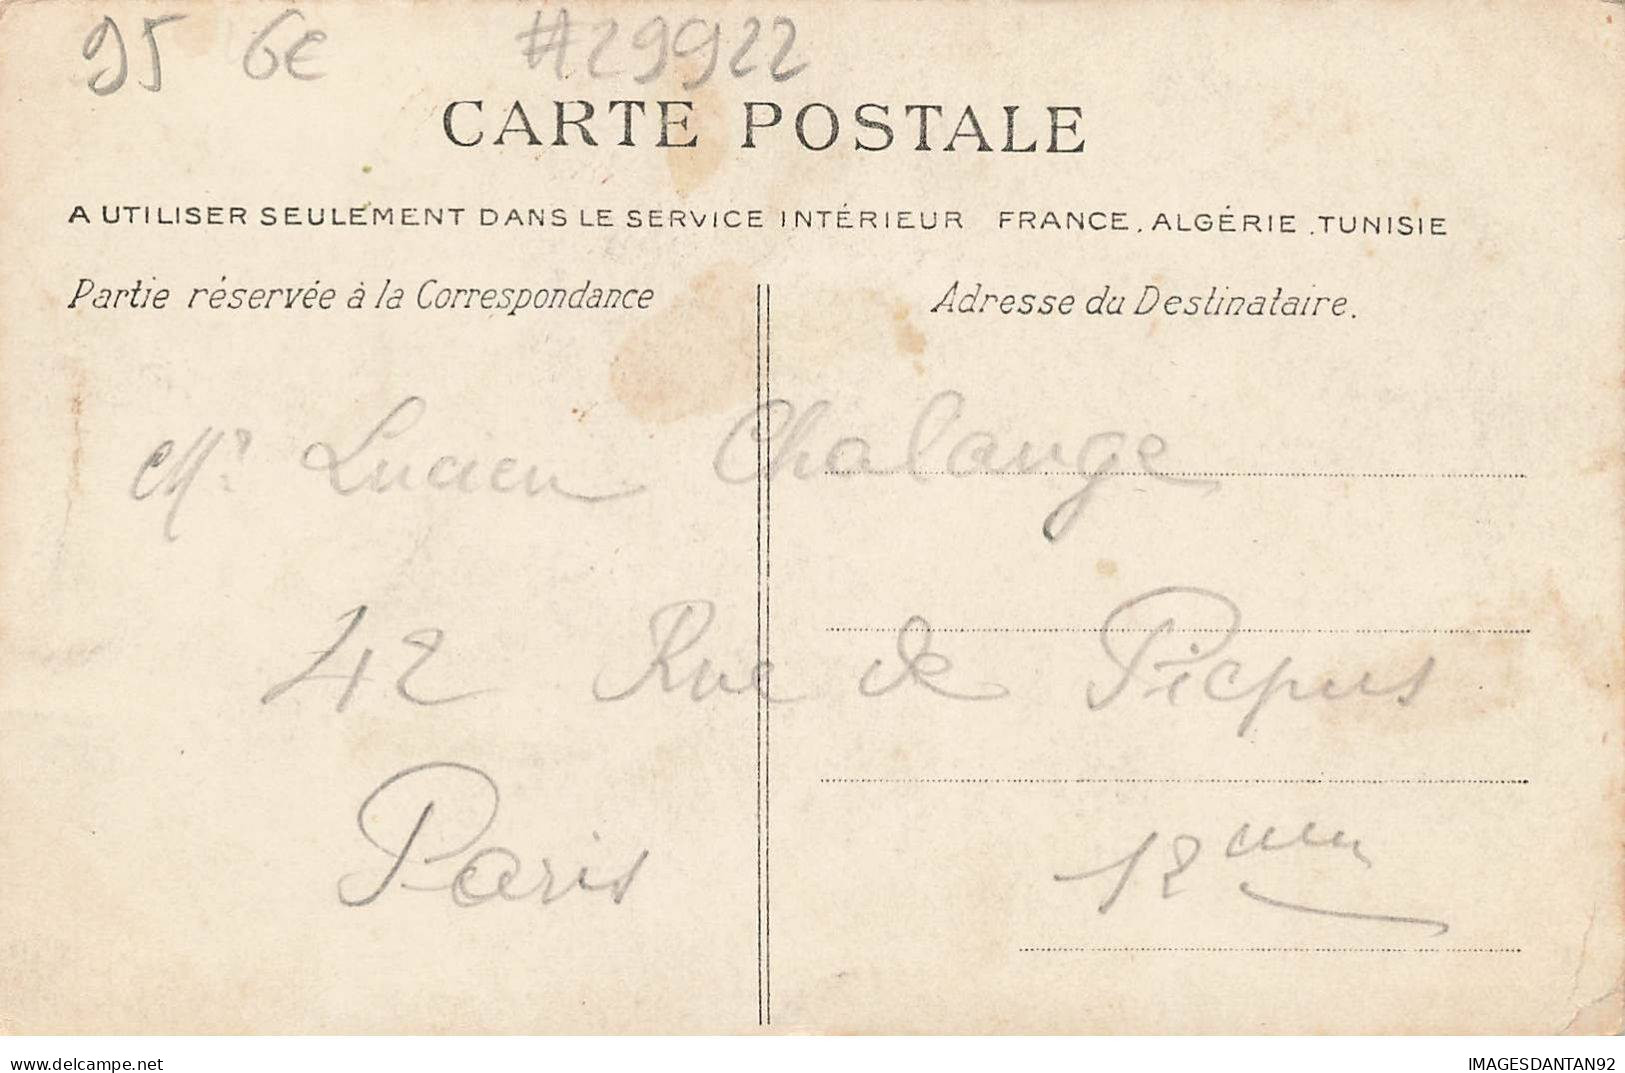 95 6€ #29922
CARTE POSTALE
A UTILISER SEULEMENT DANS LE SERVICE INTÉRIEUR FRANCE, ALGÉRIE .TUNISIE
Partie réservée à la Correspondance
Adresse du Destinataire.
Mr Lucien Chalange
42 Rue de Picpus
Paris 12eme
delcampe.net
IMAGESDANTAN92